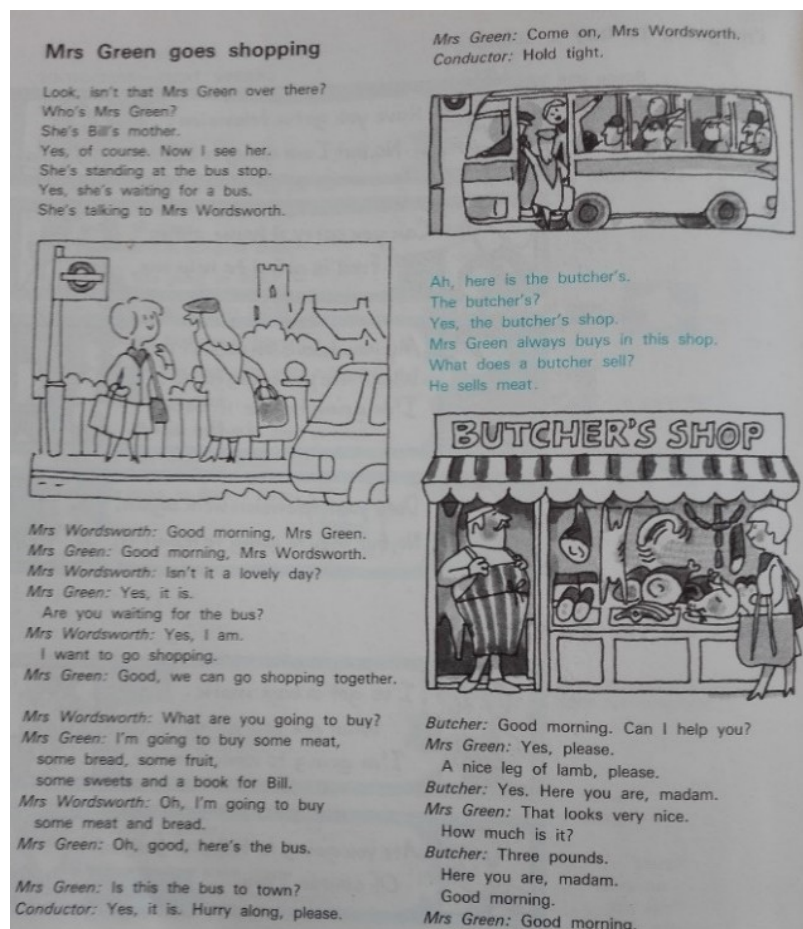 Mrs Green goes shopping
Look, isn't that Mrs Green over there?
Who's Mrs Green?
She's Bill's mother.
Yes, of course. Now I see her.
She's standing at the bus stop.
Yes, she's waiting for a bus.
She's talking to Mrs Wordsworth.
Mrs Wordsworth: Good morning, Mrs Green.
Mrs Green: Good morning, Mrs Wordsworth.
Mrs Wordsworth: Isn't it a lovely day?
Mrs Green: Yes, it is.
Are you waiting for the bus?
Mrs Wordsworth: Yes, I am.
I want to go shopping.
Mrs Green: Good, we can go shopping together.
Mrs Wordsworth: What are you going to buy?
Mrs Green: I'm going to buy some meat,
some bread, some fruit,
some sweets and a book for Bill.
Mrs Wordsworth: Oh, I'm going to buy
some meat and bread.
Mrs Green: Oh, good, here's the bus.
Mrs Green: Is this the bus to town?
Conductor: Yes, it is. Hurry along, please.
Mrs Green: Come on, Mrs Wordsworth.
Conductor: Hold tight.
Ah, here is the butcher's.
The butcher's?
Yes, the butcher's shop.
Mrs Green always buys in this shop.
What does a butcher sell?
He sells meat.
BUTCHER'S SHOP
Butcher: Good morning. Can I help you?
Mrs Green: Yes, please.
A nice leg of lamb, please.
Butcher: Yes. Here you are, madam.
Mrs Green: That looks very nice.
How much is it?
Butcher: Three pounds.
Here you are, madam.
Good morning.
Mrs Green: Good morning.